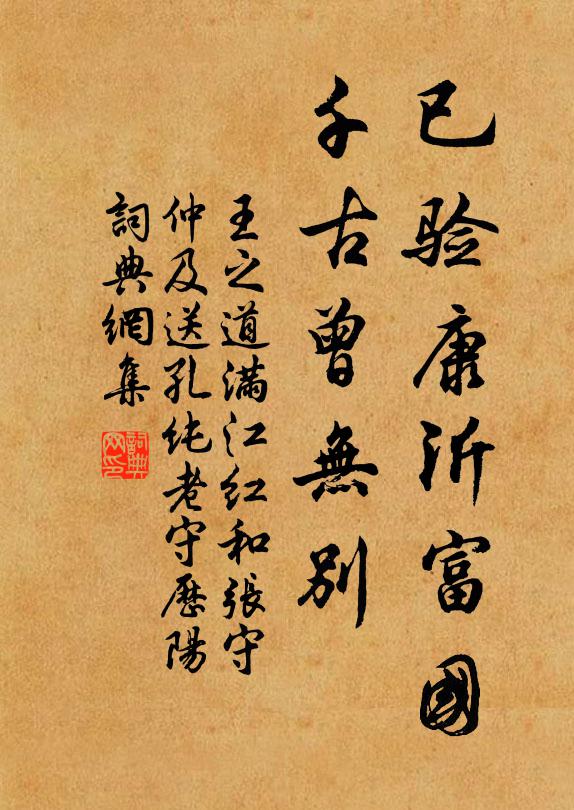 已验康沂富國
千古曾無别
王之道滿江红和張守
仲及送孔纯老守歷陽
詞典網集
詞典网印